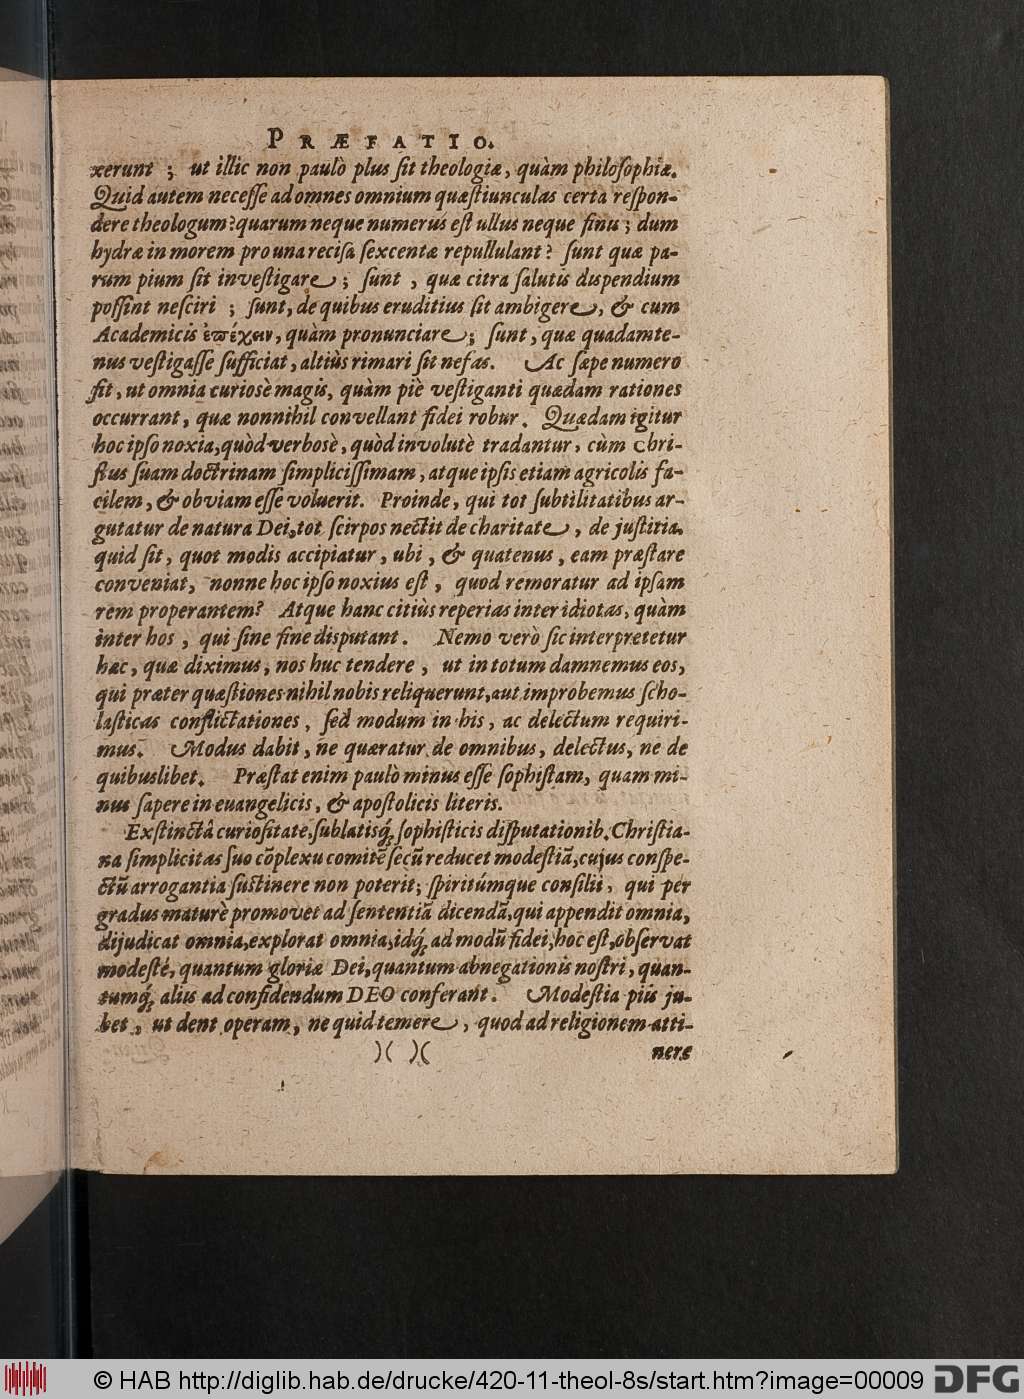 PRÆFATIO.
xerunt ; ut illic non paulò plus sit theologiæ, quàm philosophiæ.
Quid autem necesse ad omnes omnium quæstiunculas certa respon-
dere theologum? quarum neque numerus est ullus neque finis ; dum
hydræ in morem pro una recisa sexcentæ repullulant? sunt quæ pa-
rum pium sit investigare ; sunt , quæ citra salutis dispendium
possint nesciri ; sunt, de quibus eruditius sit ambigere, & cum
Academicis ἐπέχειν, quàm pronunciare ; sunt, quæ quadamte-
nus vestigasse sufficiat, altiùs rimari sit nefas. Ac sæpe numero
fit, ut omnia curiosè magis, quàm piè vestiganti quædam rationes
occurrant, quæ nonnihil convellant fidei robur. Quædam igitur
hoc ipso noxia, quòd verbosè, quòd involutè tradantur, cùm Chri-
stus suam doctrinam simplicissimam, atque ipsis etiam agricolis fa-
cilem, & obviam esse voluerit. Proinde, qui tot subtilitatibus ar-
gutatur de natura Dei, tot scirpos nectit de charitate, de justitia,
quid sit, quot modis accipiatur, ubi, & quatenus, eam præstare
conveniat, nonne hoc ipso noxius est, quod remoratur ad ipsam
rem properantem? Atque hanc citiùs reperias inter idiotas, quàm
inter hos, qui sine fine disputant. Nemo verò sic interpretetur
hæc, quæ diximus, nos huc tendere, ut in totum damnemus eos,
qui præter quæstiones nihil nobis reliquerunt, aut improbemus scho-
lasticas conflictationes, sed modum in his, ac delectum requiri-
mus. Modus dabit, ne quæratur de omnibus, delectus, ne de
quibuslibet. Præstat enim paulò minus esse sophistam, quam mi-
nus sapere in euangelicis, & apostolicis literis.
Exstinctâ curiositate, sublatisq́; sophisticis disputationib. Christia-
na simplicitas suo cōplexu comitē secū reducet modestiā, cujus conspe-
ctū arrogantia sustinere non poterit; spiritúmque consilii, qui per
gradus maturè promovet ad sententiā dicendā, qui appendit omnia,
dijudicat omnia, explorat omnia, idq́; ad modū fidei, hoc est, observat
modestè, quantum gloriæ Dei, quantum abnegationis nostri, quan-
tumq́; alius ad confidendum DEO conferant. Modestia piis ju-
bet, ut dent operam, ne quid temere, quod ad religionem atti-
)( )( nere
© HAB http://diglib.hab.de/drucke/420-11-theol-8s/start.htm?image=00009
DFG